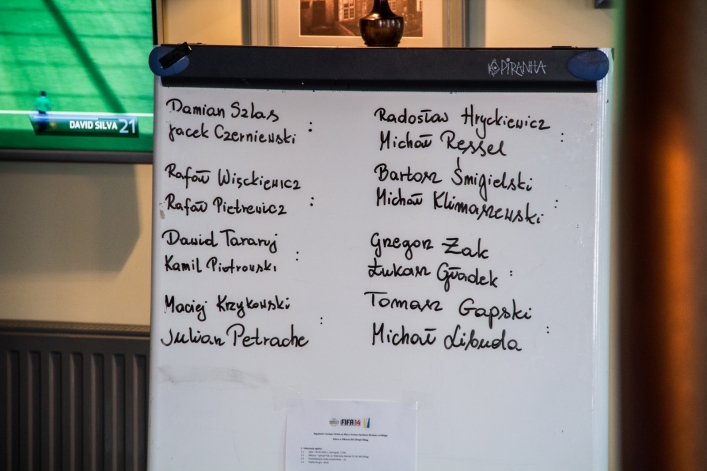 DAVID SILVA 21
PIRANHA
Damian Szlas
Jacek Czerniewski :
Rafał Więckiewicz
Rafał Pietrewicz :
Dawid Tararuj :
Kamil Piotrowski
Maciej Krzykowski :
Julian Petrache
Radosław Hryckiewicz :
Michał Ressel
Bartosz Śmigielski
Michał Klimaszewski :
Grzegorz Żak
Łukasz Gładek :
Tomasz Gapski
Michał Libuda :
FIFA14